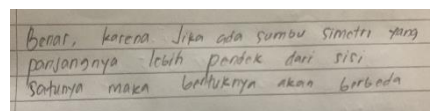 Benar, karena Jika ada sumbu simetri yang
panjangnya lebih pendek dari sisi
satunya maka bentuknya akan berbeda